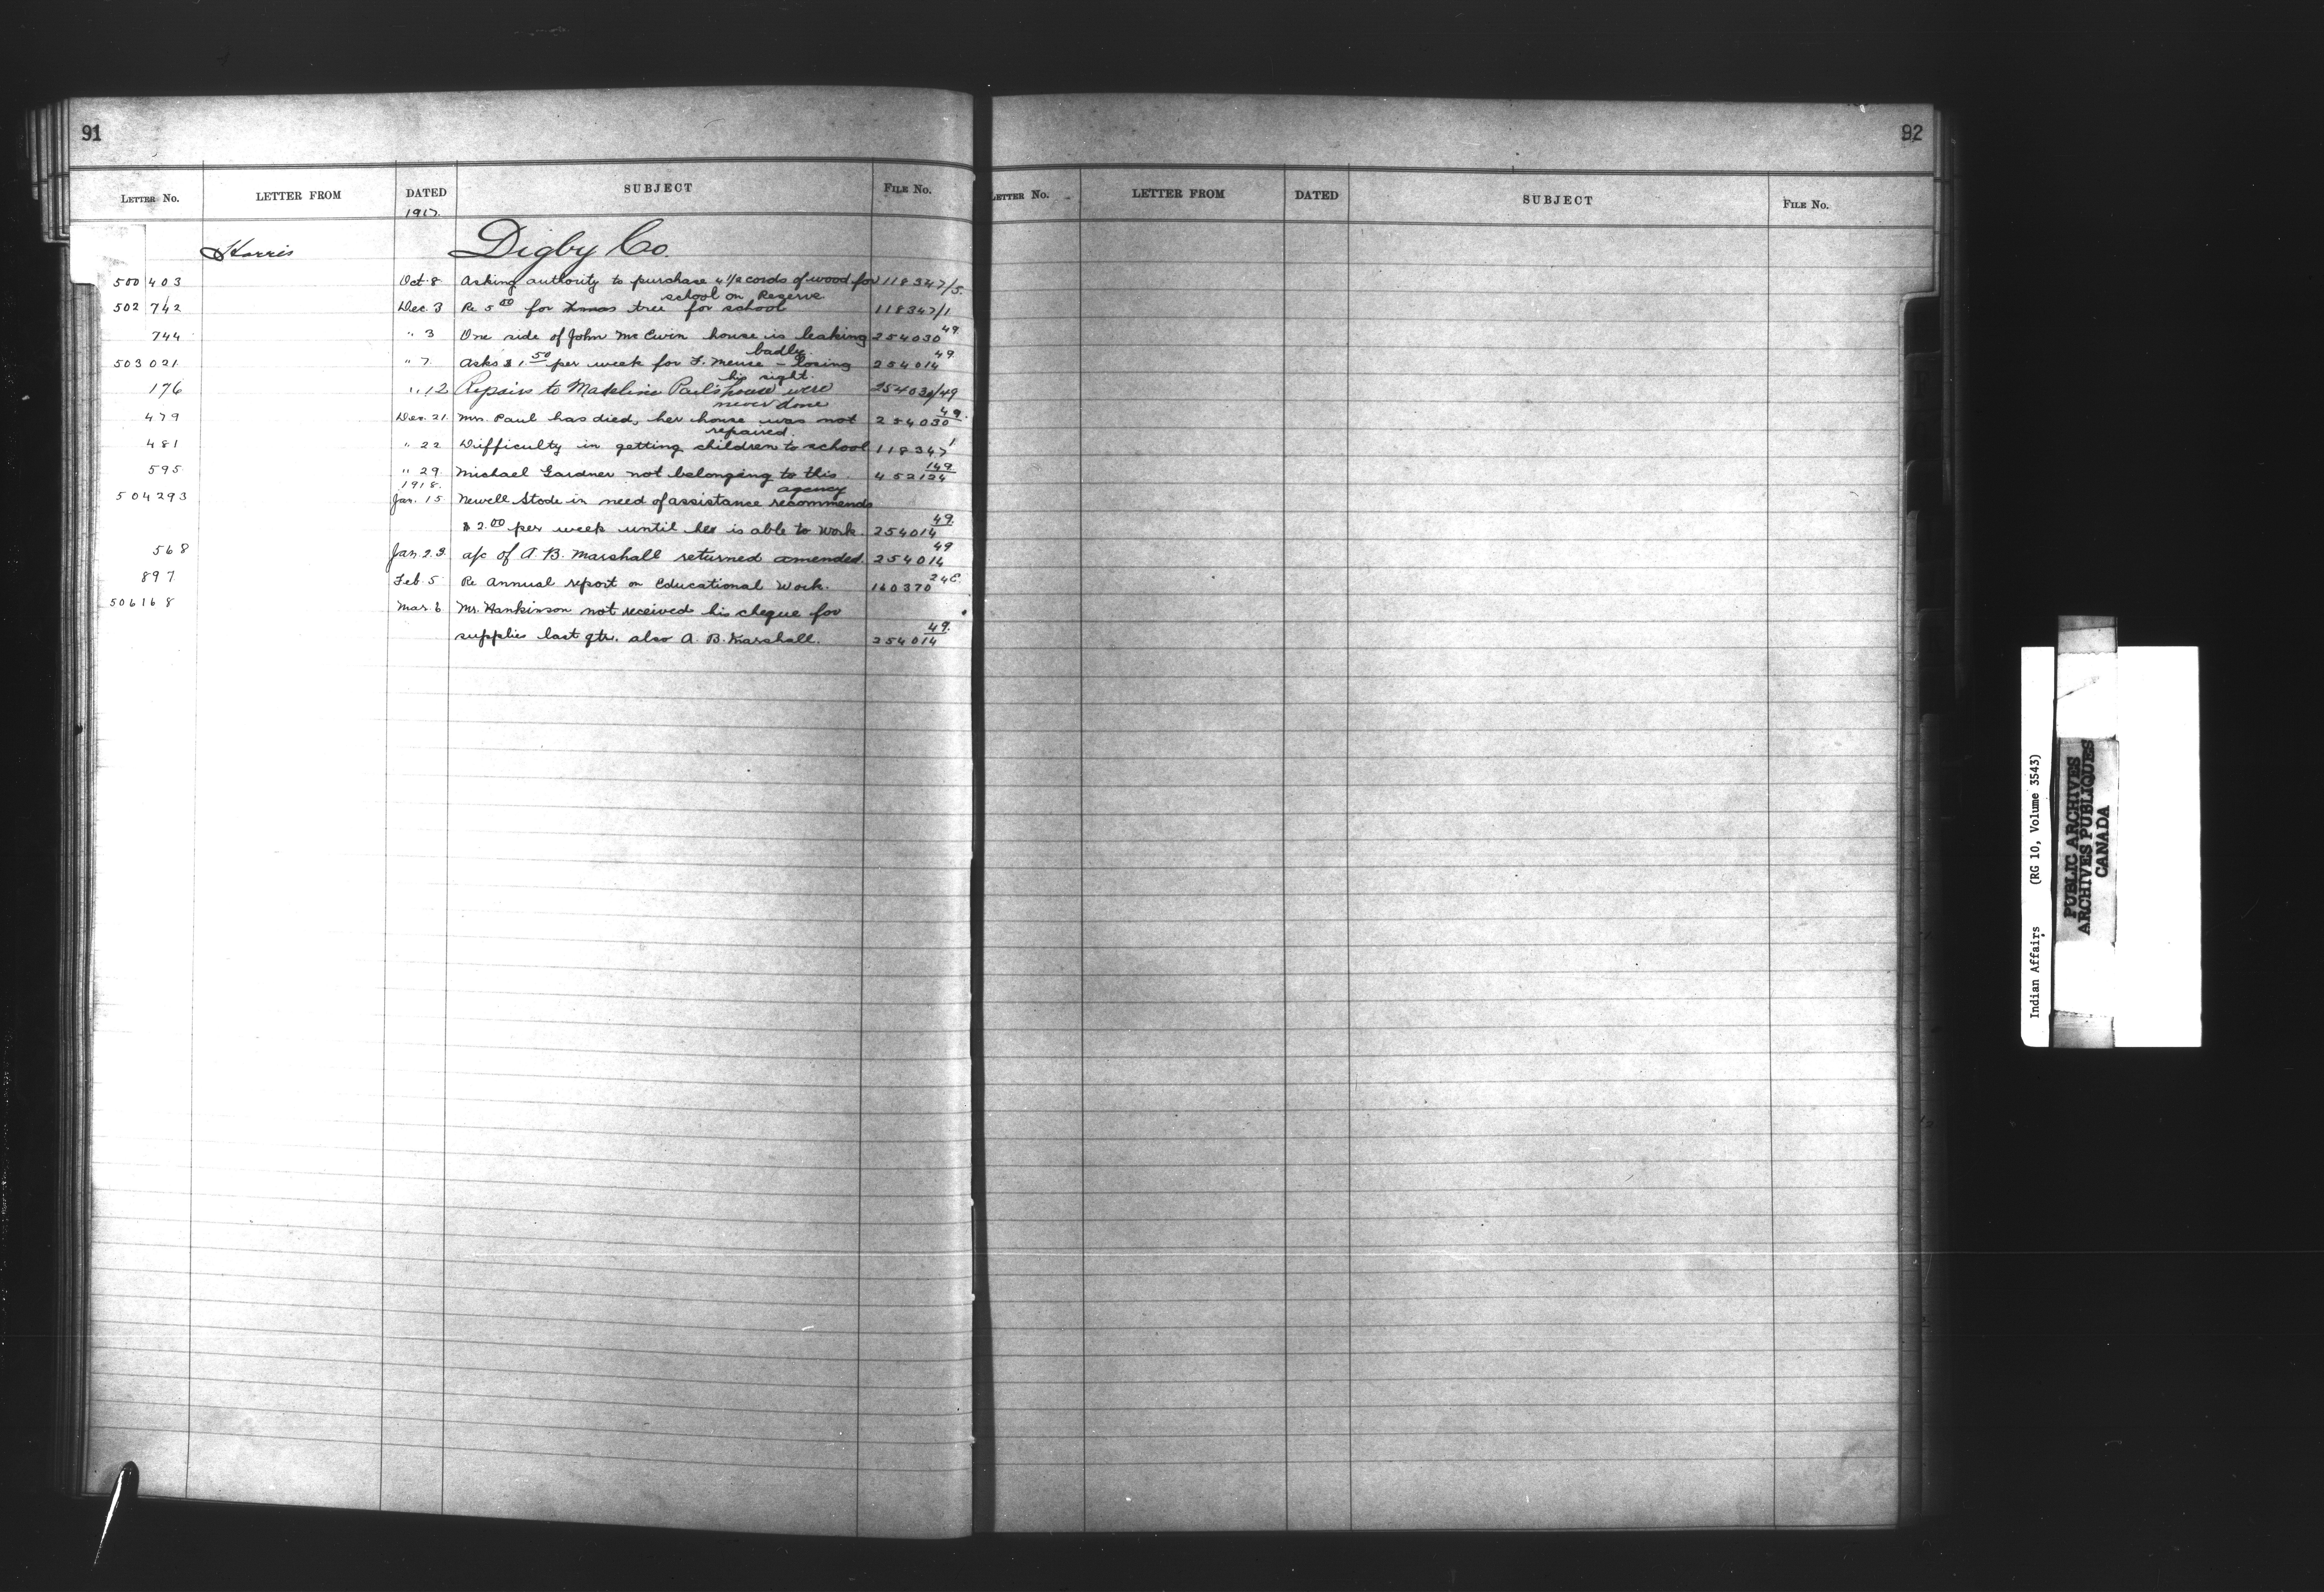 91
LETTER NO. LETTER FROM DATED SUBJECT FILE NO.
1917.
Harris Digby Co.
500 403 Oct. 8 Asking authority to purchase 4 1/2 cords of wood for 118347/5.
school on Reserve
502 742 Dec. 3 Re 5 00 for Xmas tree for school 118347/1
744 " 3 One side of John McEwin house is leaking 254030 49.
badly.
503 021 " 7. Asks $1.50 per week for F. Meuse – losing 254014 49.
his sight.
176 " 12 Repairs to Madeline Paul's house were 254030/49
never done
479 Dec. 21. Mrs. Paul has died, her house was not 254030 49.
repaired.
481 " 22 Difficulty in getting children to school 118347 1
595 " 29 Michael Gardner not belonging to this 452124 149
1918. agency
504293 Jan. 15 Newell Stode in need of assistance recommends
$2.00 per week until he is able to work. 254014 49.
568 Jan. 22. a/c of A. B. Marshall returned amended. 254014 49
897 Feb. 5 Re Annual report on Educational Work. 160370 24C.
506168 Mar. 6 Mr. Hankinson not received his cheque for
supplies last qtr. also A. B. Marshall. 254014 49.
92
LETTER NO. LETTER FROM DATED SUBJECT FILE NO.
Indian Affairs (RG 10, Volume 3543)
PUBLIC ARCHIVES
ARCHIVES PUBLIQUES
CANADA